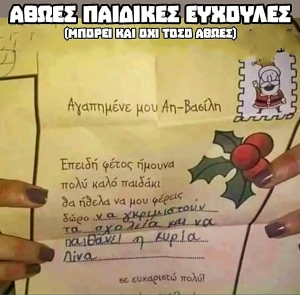 ΑΘΩΕΣ ΠΑΙΔΙΚΕΣ ΕΥΧΟΥΛΕΣ
(ΜΠΟΡΕΙ ΚΑΙ ΟΧΙ ΤΟΣΟ ΑΘΩΕΣ)
Αγαπημένε μου Αη-Βασίλη
Επειδή φέτος ήμουνα
πολύ καλό παιδάκι
θα ήθελα να μου φέρεις
δώρο να γκριμιστούν
τα σχολεία και να
παιθάνει η κυρία
Λίνα
σε ευχαριστώ πολύ!